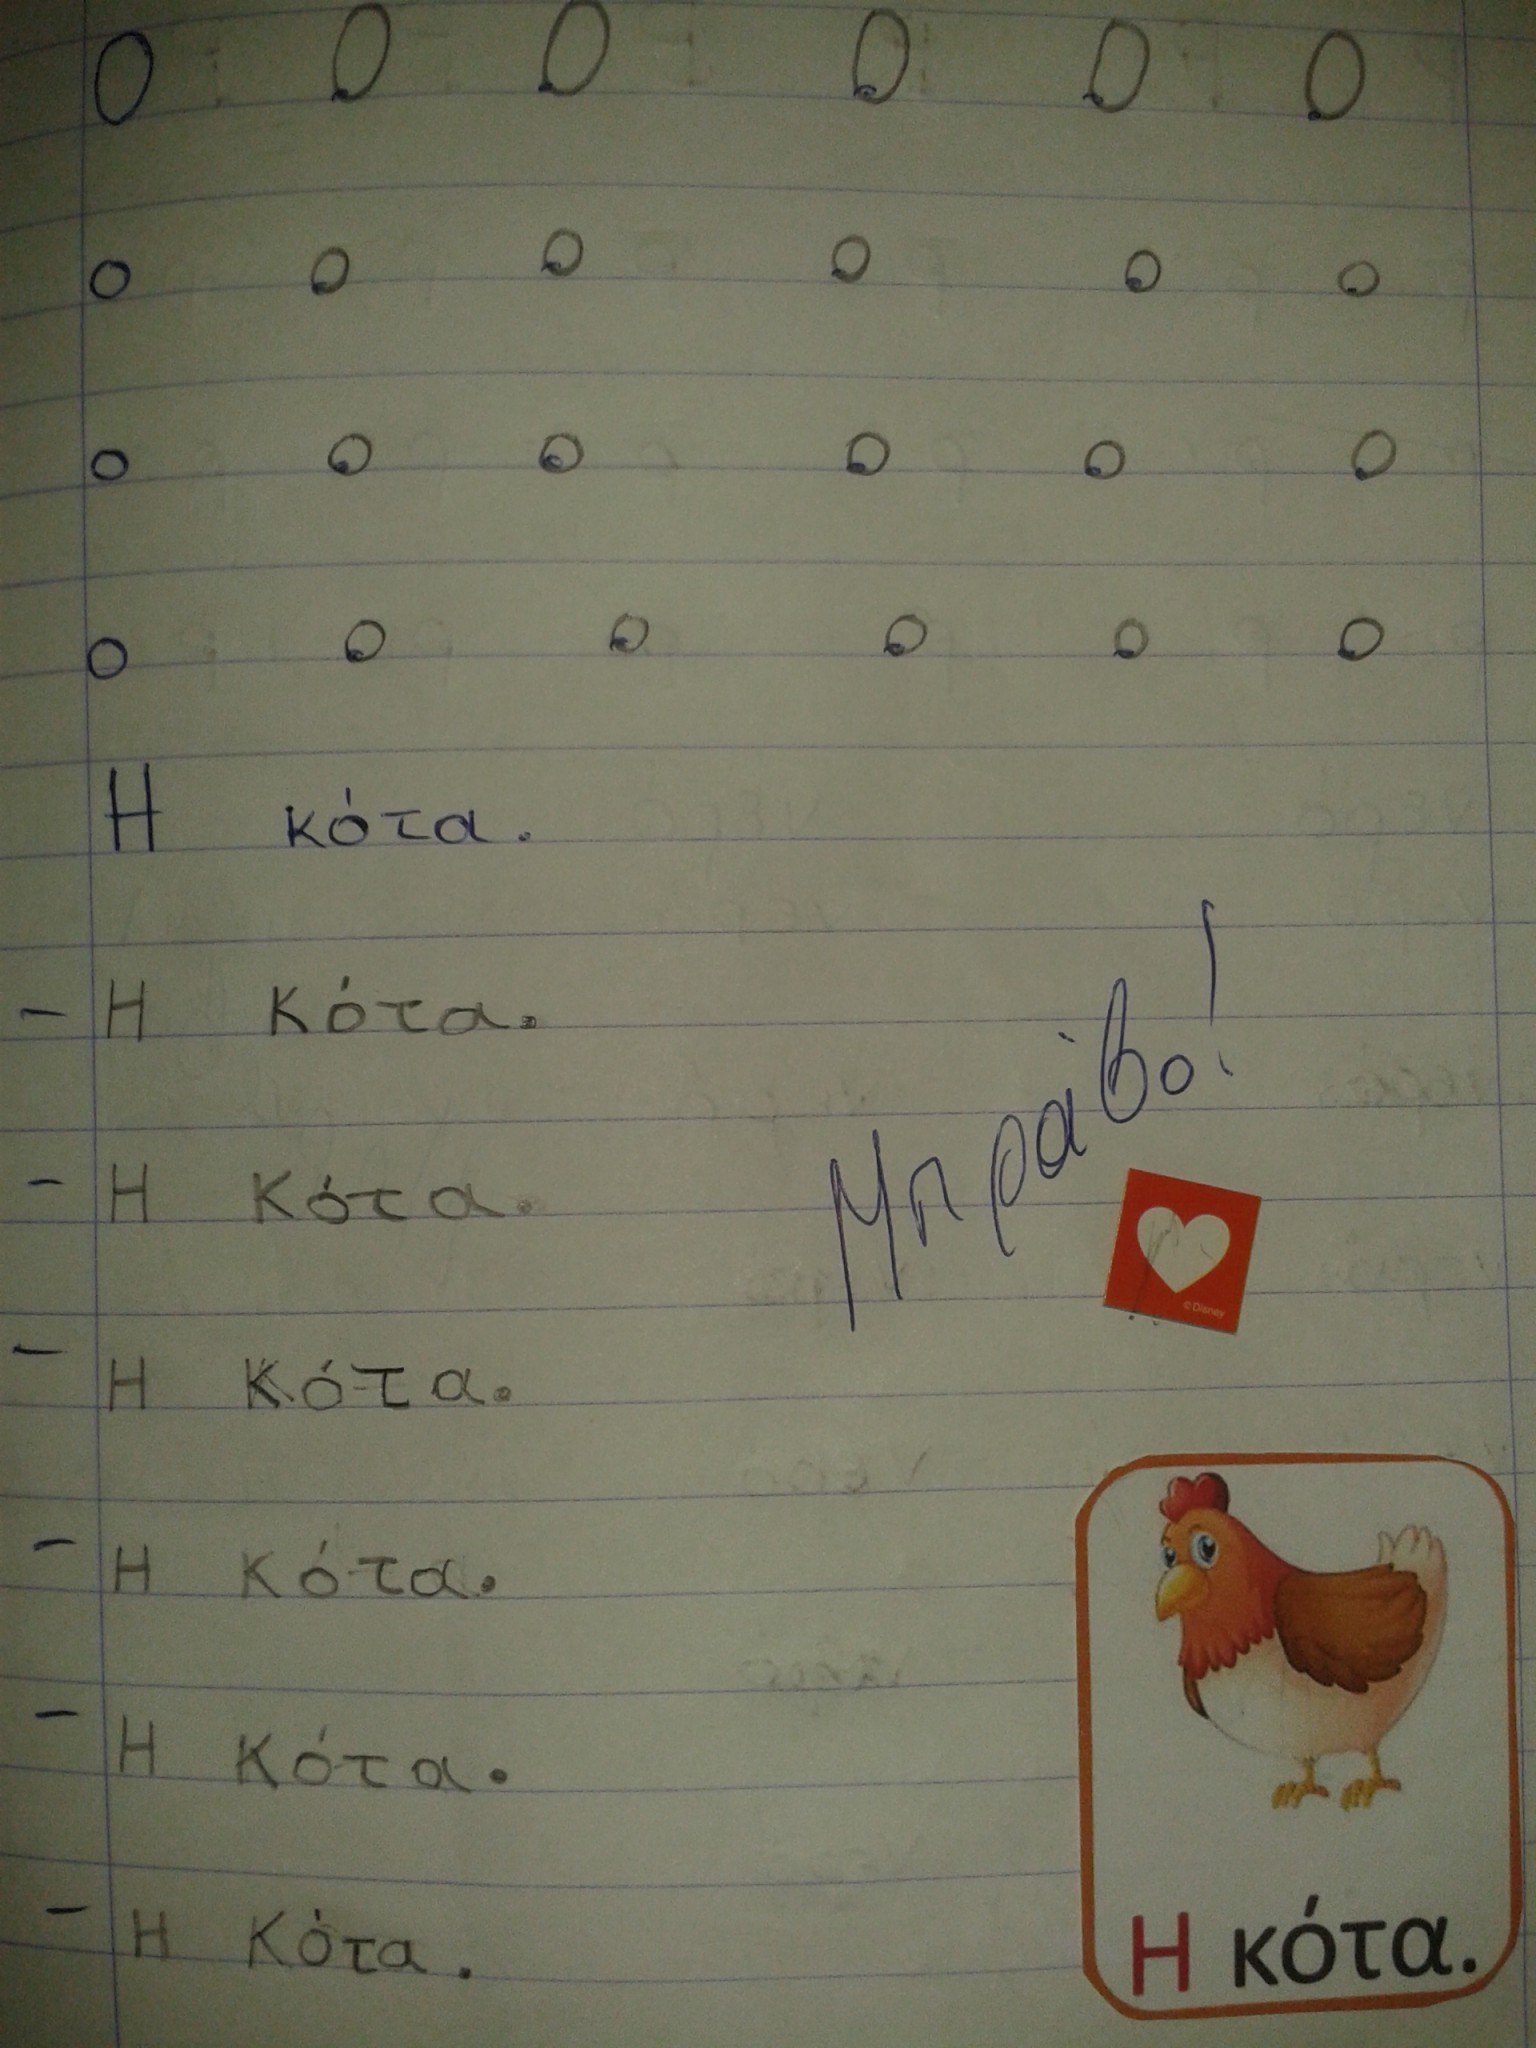 Ο Ο Ο Ο Ο Ο
ο ο ο ο ο ο
ο ο ο ο ο ο
ο ο ο ο ο ο
Η κότα.
- Η κότα.
- Η κότα.
- Η κότα.
- Η κότα.
- Η κότα.
- Η κότα.
Μπράβο!
©Disney
Η κότα.